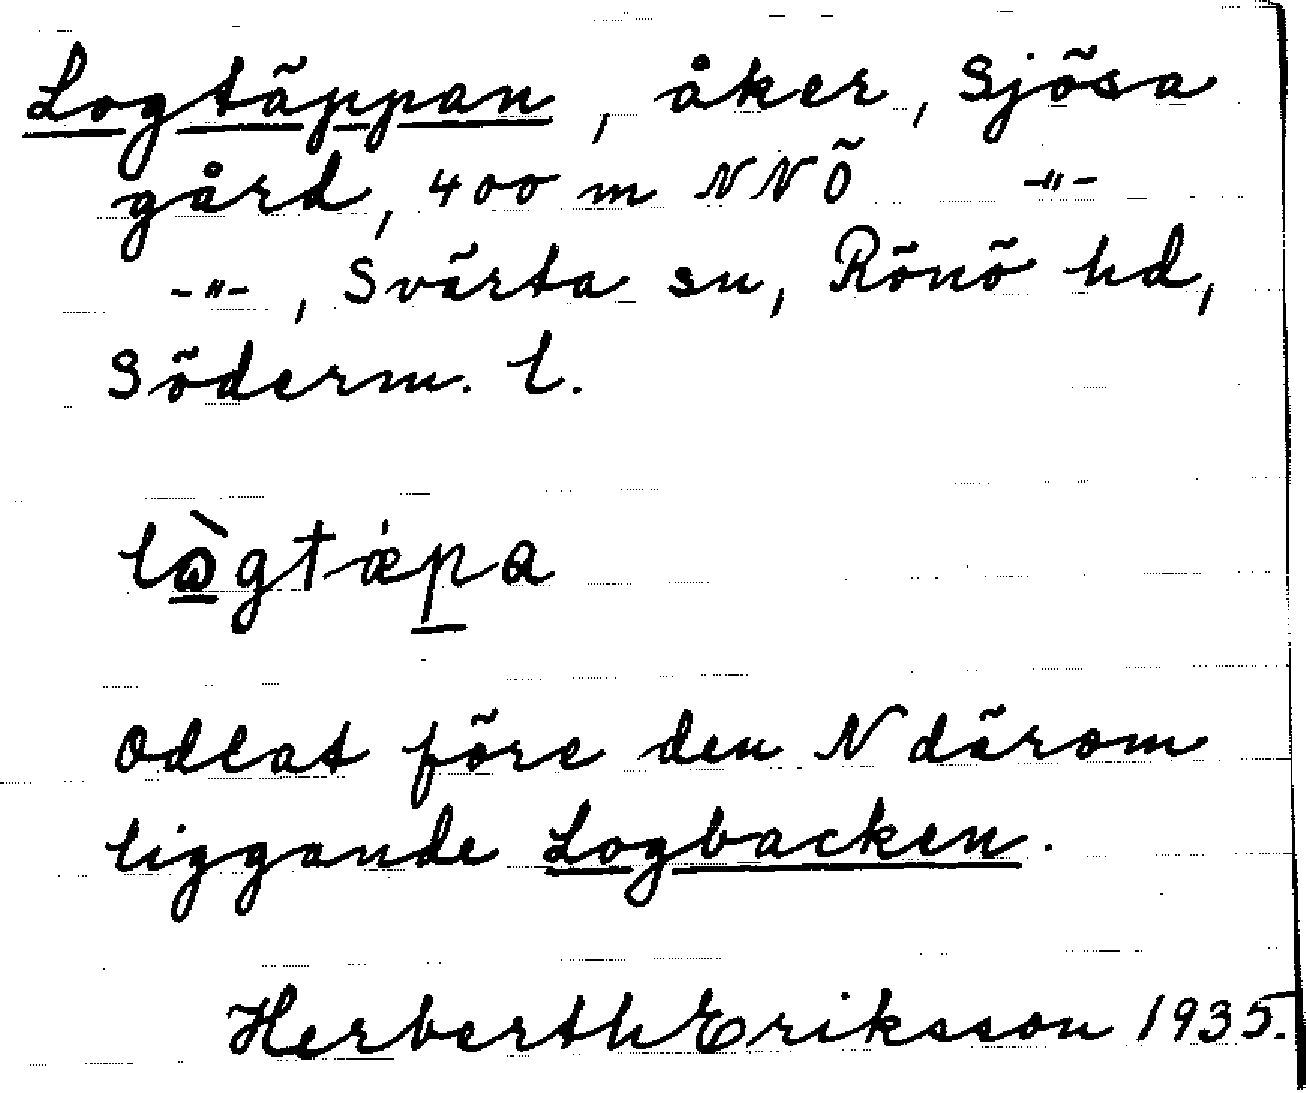 Logtäppan, åker, Sjösa
gård, 400 m NNÖ -"-
-"-, Svärta sn, Rönö hd,
Söderm. l.
Odlat före den N därom
liggande Logbacken.
Herberth Eriksson 1935.